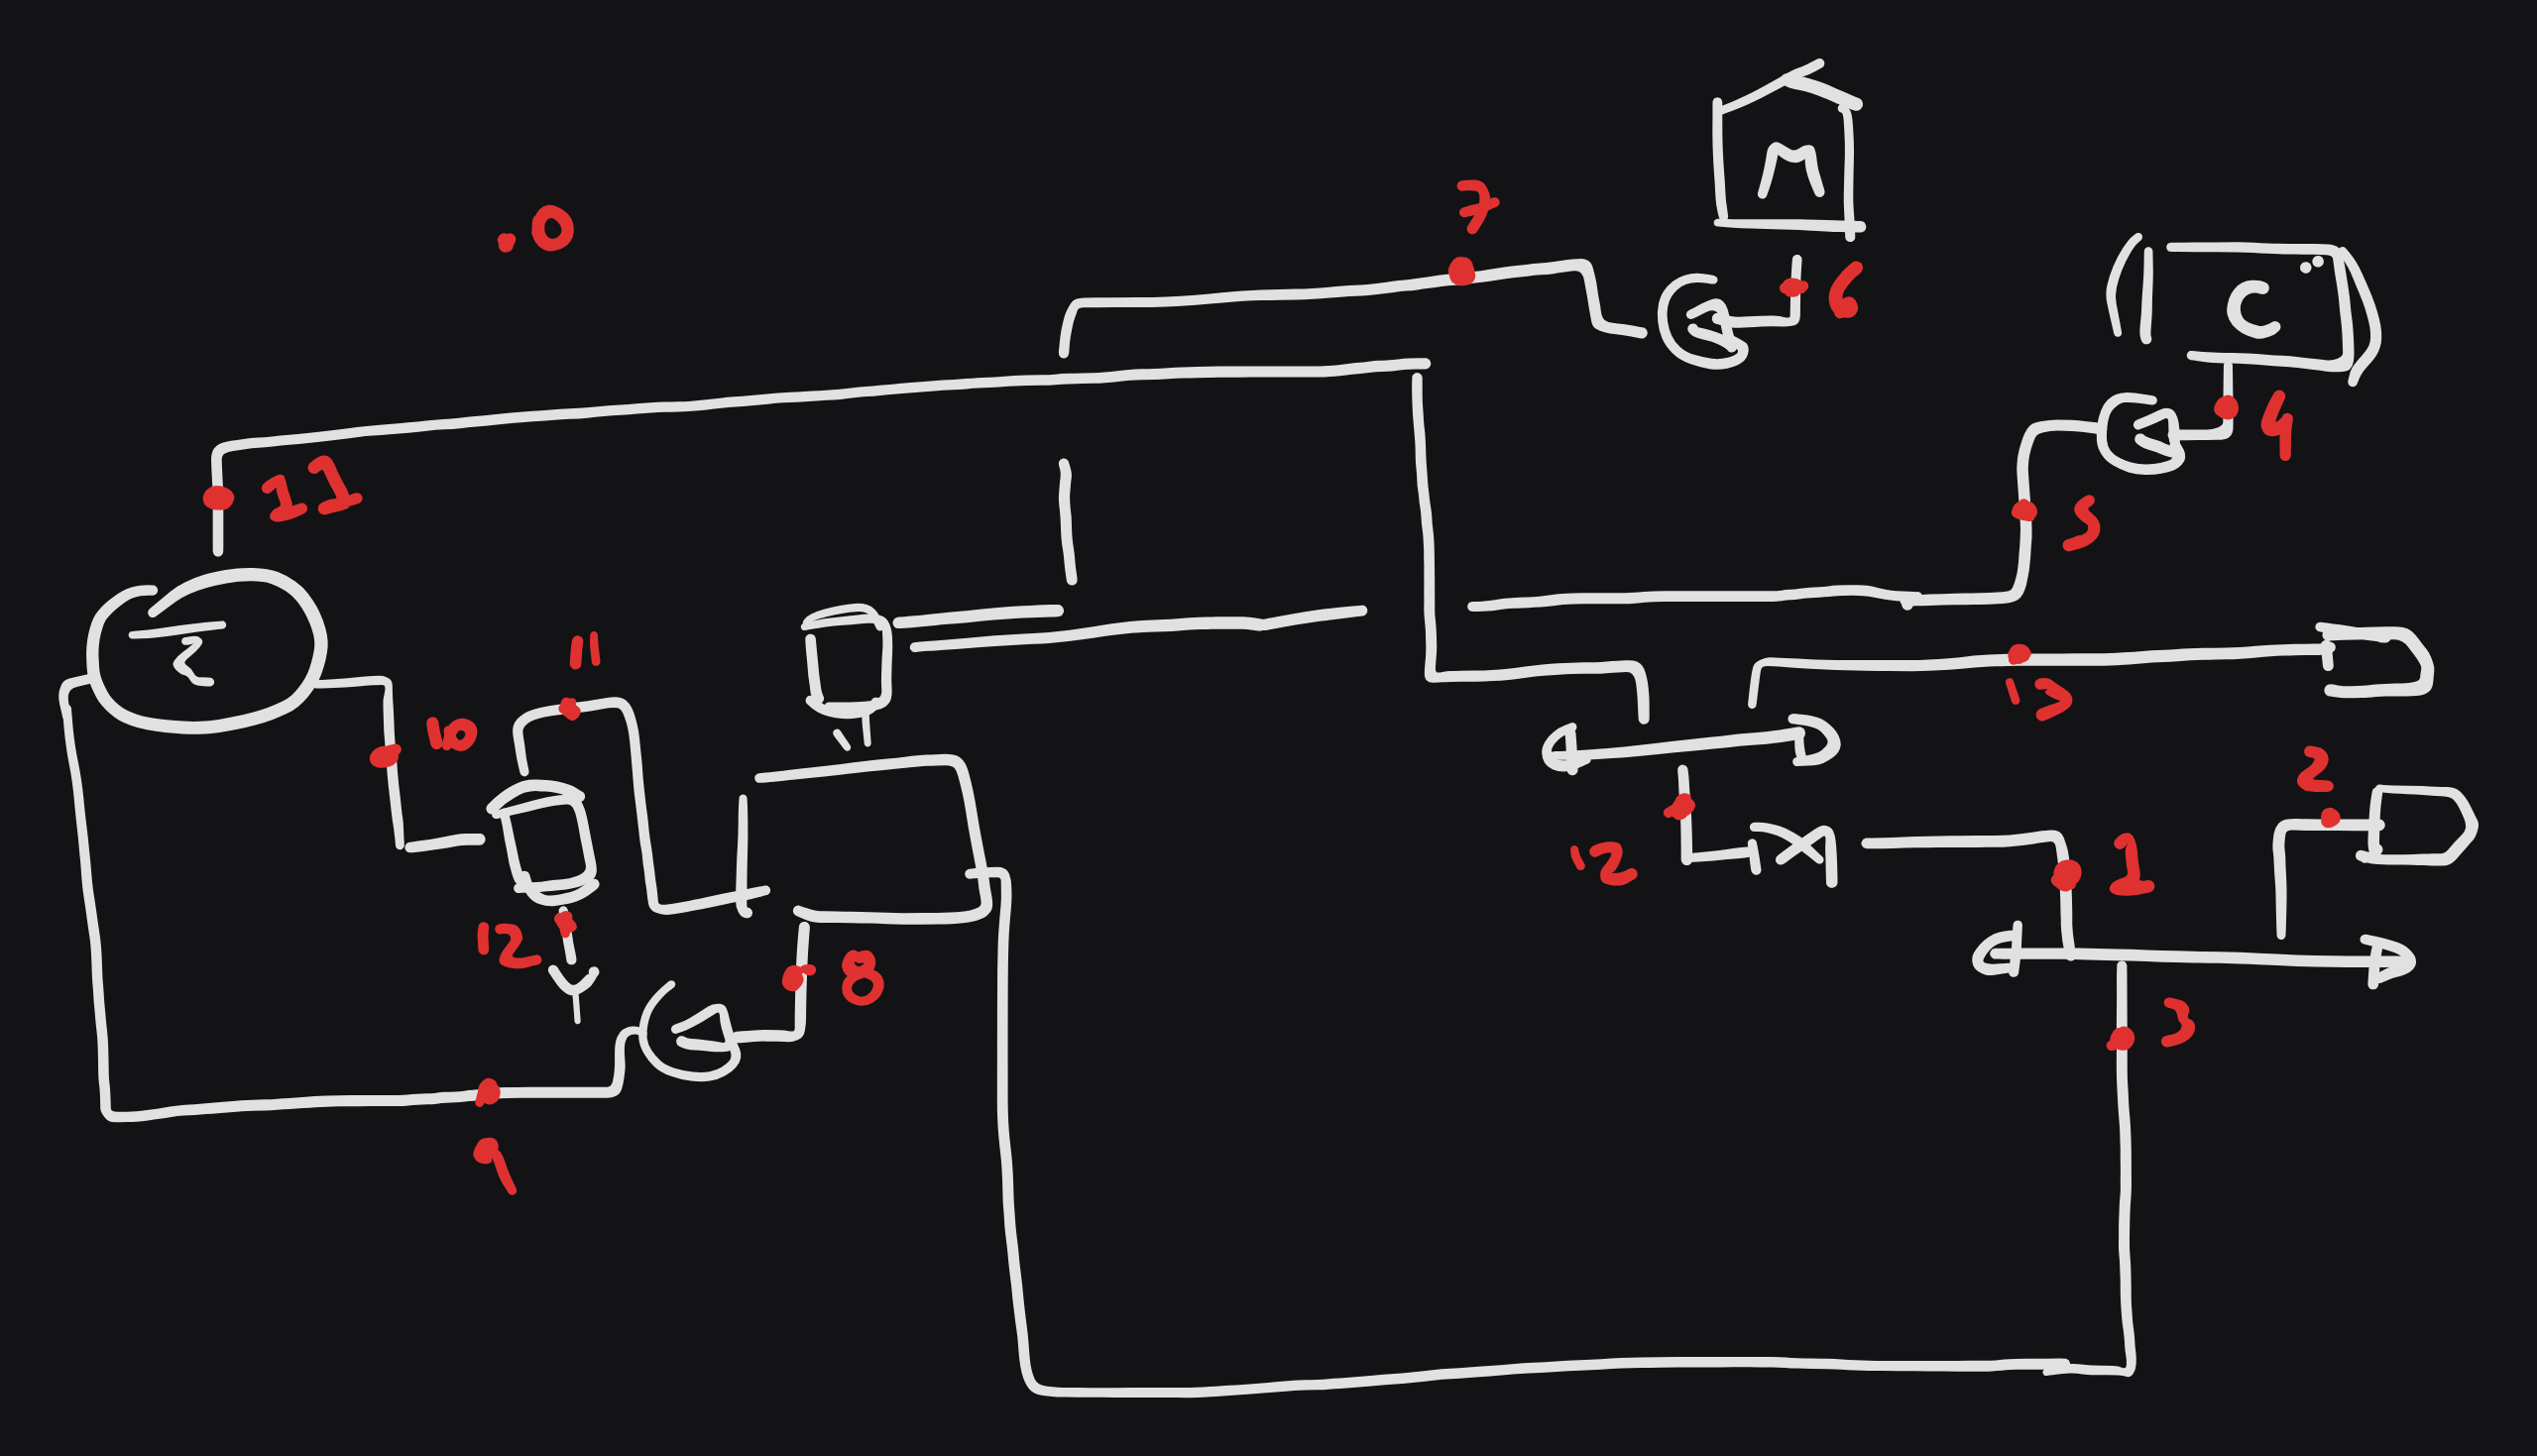 0
7
M
6
C
4
5
11
11
10
13
2
12
1
12
8
3
9